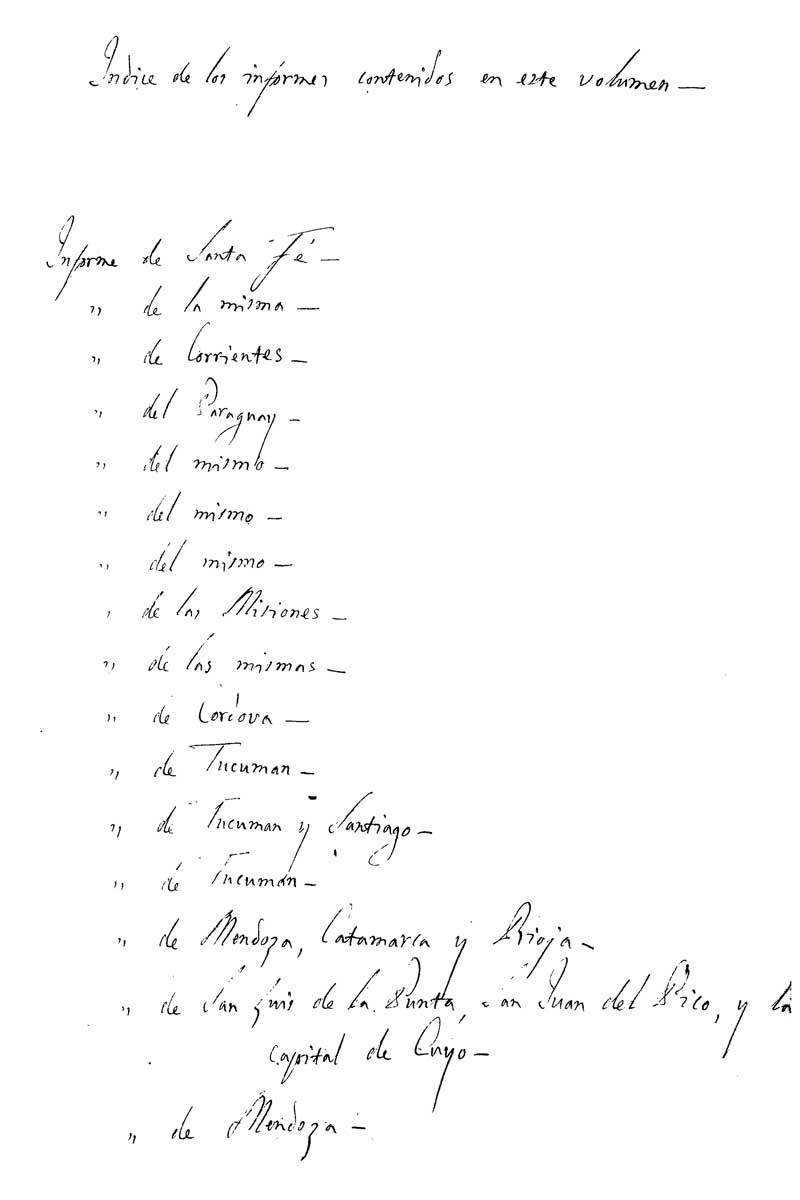 Indice de los informes contenidos en este volumen —
Informe de Santa Fé —
" de la misma —
" de Corrientes —
" del Paraguay —
" del mismo —
" del mismo —
" del mismo —
" de las Misiones —
" de las mismas —
" de Cordova —
" de Tucuman —
" de Tucuman y Santiago —
" de Tucumán —
" de Mendoza, Catamarca y Rioja —
" de San Luis de la Punta, San Juan del Pico, y la
capital de Cuyo —
" de Mendoza —